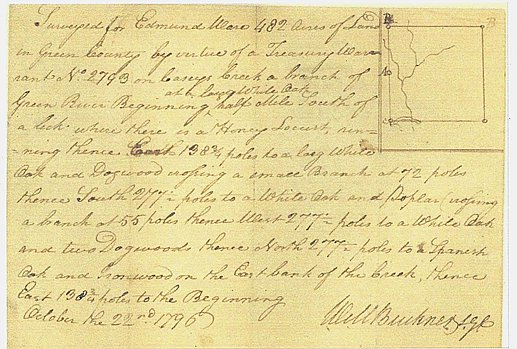 Surveyed for Edmund Ware 482 Acres of Land
in Green County by virtue of a Treasury War-
rant No 2793 on Caseys Creek a branch of
at a larg White Oak
Green River Beginning half Mile South of
a lick where there is a Honey Locust, run-
-ning thence East 138¾ poles to a larg White
Oak and Dogwood crossing a small Branch at 72 poles
thence South 277½ poles to a White Oak and Poplar crossing
a branch at 55 poles thence West 277½ poles to a White Oak
and two Dogwoods thence North 277½ poles to a Spanish
Oak and ironwood on the East bank of the Creek, thence
East 138¾ poles to the Beginning
October the 22nd 1796
Will Buckner
B